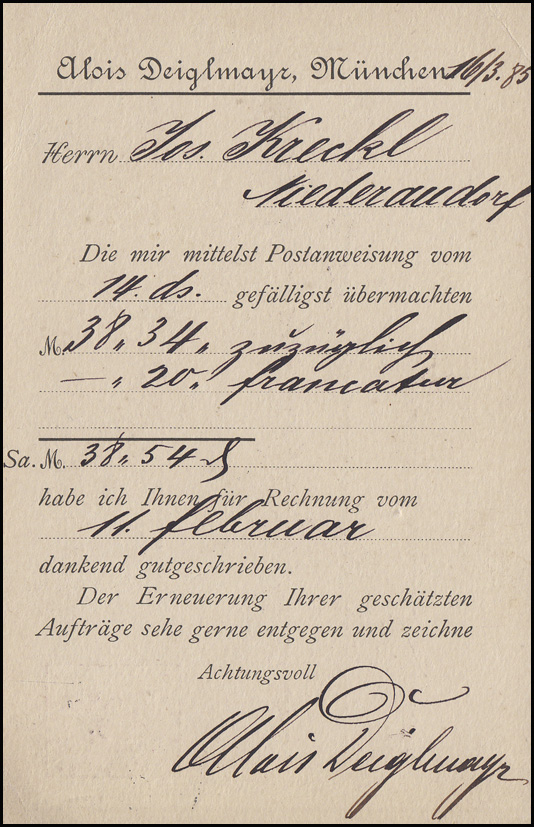 Alois Deiglmayr, München 16/3. 85
Herrn Jos. Kreckl
Niederaudorf
Die mir mittelst Postanweisung vom
14. ds. gefälligst übermachten
M. 38 „ 34 „ zuzüglich
— „ 20 „ francatur
Sa. M. 38 „ 54 ₰
habe ich Ihnen für Rechnung vom
11. februar
dankend gutgeschrieben.
Der Erneuerung Ihrer geschätzten
Aufträge sehe gerne entgegen und zeichne
Achtungsvoll
Alois Deiglmayr